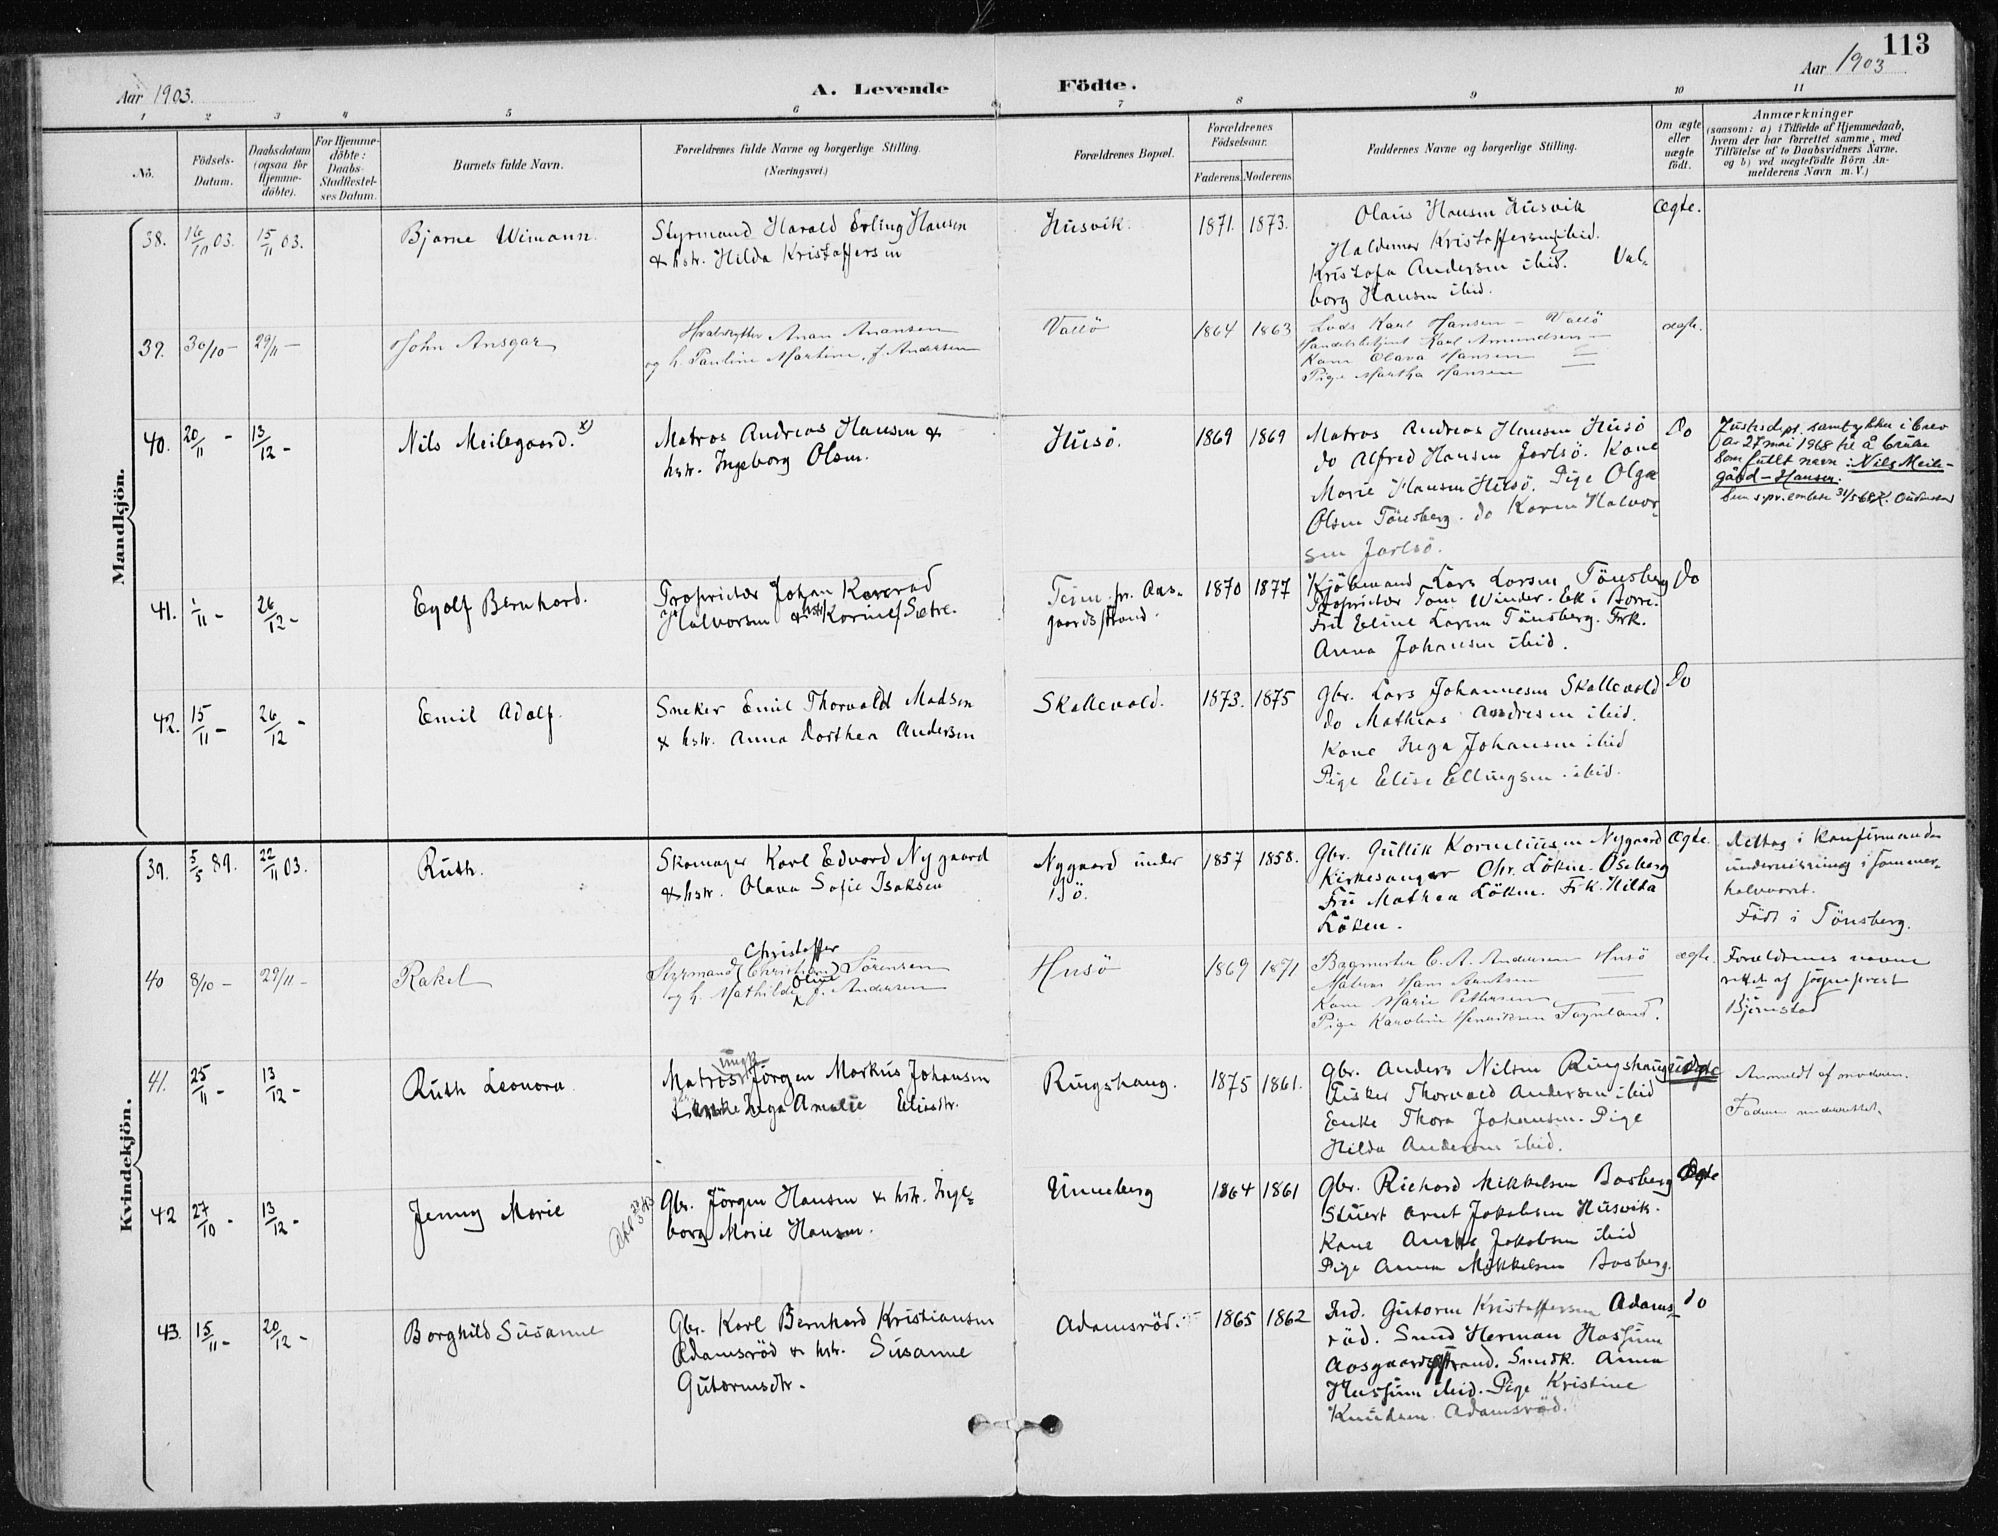 113
Aar 1903.
A. Levende
Födte.
Aar 1903
1 2 3 4 5 6 7 8 9 10 11
No.
Födsels-
Datum.
Daabsdatum
(ogsaa för
Hjemme-
döbte).
For Hjemme-
döbte:
Daabs-
Stadfæstel-
ses Datum.
Barnets fulde Navn.
Forældrenes fulde Navne og borgerlige Stilling.
(Næringsvei.)
Forældrenes Bopæl.
Forældrenes
Födselsaar.
Faderens.
Moderens.
Faddernes Navne og borgerlige Stilling.
Om ægte
eller
uægte
født.
Anmærkninger
(saasom: a) i Tilfælde af Hjemmedaab,
hvem der har forrettet samme, med
Tilföielse af to Daabsvidners Navne,
og b) ved uægtefödte Börn An-
melderens Navn m. V.)
Mandkjön.
38.
16/10 03.
15/11 03.
Bjarne Wimann.
Styrmand Harald Erling Hansen
& hstr. Hilda Kristoffersen
Husvik.
1871.
1873.
Olaus Hansen Husvik
Haldemar Kristoffersen ibid.
Kristofa Andersen ibid. Val-
borg Hansen ibid.
Ægte.
39.
30/10 -
29/11 -
John Ansgar
Anan Anansen
og h. Pauline Martine f. Andersen
Vallö
1864
1863
Lods Karl Hansen - Vallö
Handelsbetjent Karl Amundsen -
Kone Olava Hansen -
Pige Martha Hansen -
ægte.
40.
20/11 -
13/12 -
Nils Meilegaard. x)
Matros Andreas Hansen &
hstr. Ingeborg Olsen.
Husö.
1869
1869
Matros Andreas Hansen Husö
do Alfred Hansen Jarlsö. Kone
Marie Hansen Husö. Pige Olga
Olsen Tönsberg. do Karen Halvor-
sen Jarlsö.
Do
Justisdept. samtykker i brev
av 27 mai 1968 til å bruke
som fullt navn: Nils Meile-
gård-Hansen.
Sem s.pr.embete 31/5 68
41.
1/11 -
26/12 -
Egolf Bernhard.
Proprietær Johan Konrad
Halvorsen & hstr. Sætre.
Teien pr. Aas-
gaardsstrand.
1870
1877
Kjöbmand Lars Larsen Tönsberg
Proprietær Tom Winder. Eik i Borre.
Fru Eline Larsen Tönsberg. Frk.
Anna Johansen ibid.
Do
42.
15/11 -
26/12 -
Emil Adolf.
Sneker Emil Thorvald Madsen
& hstr. Anna Dorthea Andersen
Skallevold.
1873.
1875
Gbr. Lars Johannesen Skallevold
do Mathias Andresen ibid.
Kone Inga Johansen ibid
Pige Elise Ellingsen ibid.
Do
Kvindekjön.
39.
5/5 89.
22/11 03.
Ruth.
Skomager Karl Edvard Nygaard
& hstr. Olava Sofie Isaksen
Nygaard under
Bö.
1857
1858.
Gbr. Gullik Korneliusen Nygaard
Kirkesanger Chr. Löken. Oseberg
Fru Mathea Löken. Frk. Hilda
Löken.
Ægte.
Deltog i konfirmander
undervisning i sommer-
halvaaret.
Födt i Tönsberg.
40
8/10 -
29/11 -
Rakel
Christoffer
Styrmand (Christian) Sörensen
Oline
og h. Mathilde f. Andersen
Husö
1869
1871
C. A. Andersen Husö
Matros Hans
Kone Marie Pettersen
Pige Karoline Henriksen Föynland.
ægte.
Forældrenes navne
rettet af sogneprest
Björnstad
41.
25/11 -
13/12 -
Ruth Leonora
ungk.
Matros Jörgen Markus Johansen
& enke Inga Amalie Eliasdtr.
Ringshaug.
1875
1861.
Gbr. Anders Nilsen Ringshaug
Fisker Thorvald Andersen ibid
Enke Thora Johansen. Pige
Hilda Andersen ibid.
uægte
Anmeldt af moderen.
Faderen underrettet.
42
27/10 -
13/12 -
Jenny Marie
Gbr. Jörgen Hansen & hstr. Inge-
borg Marie Hansen.
Unneberg
1864
1861
Gbr. Richard Mikkelsen Basberg
Stuert Arnt Jakobsen Husvik.
Kone Jakobsen ibid
Pige Anna Mikkelsen Basberg.
Ægte
43.
15/11 -
20/12 -
Borghild Susanne
Gbr. Karl Bernhard Kristiansen
Adamsröd & hstr. Susanne
Gutormsdtr.
Adamsröd.
1865
1862
Ind. Gutorm Kristoffersen Adams-
röd. Smed Herman Hassum
Aasgaardsstrand. Smedk. Anna
Hassum ibid. Pige Kristine
Knudsen Adamsröd.
do